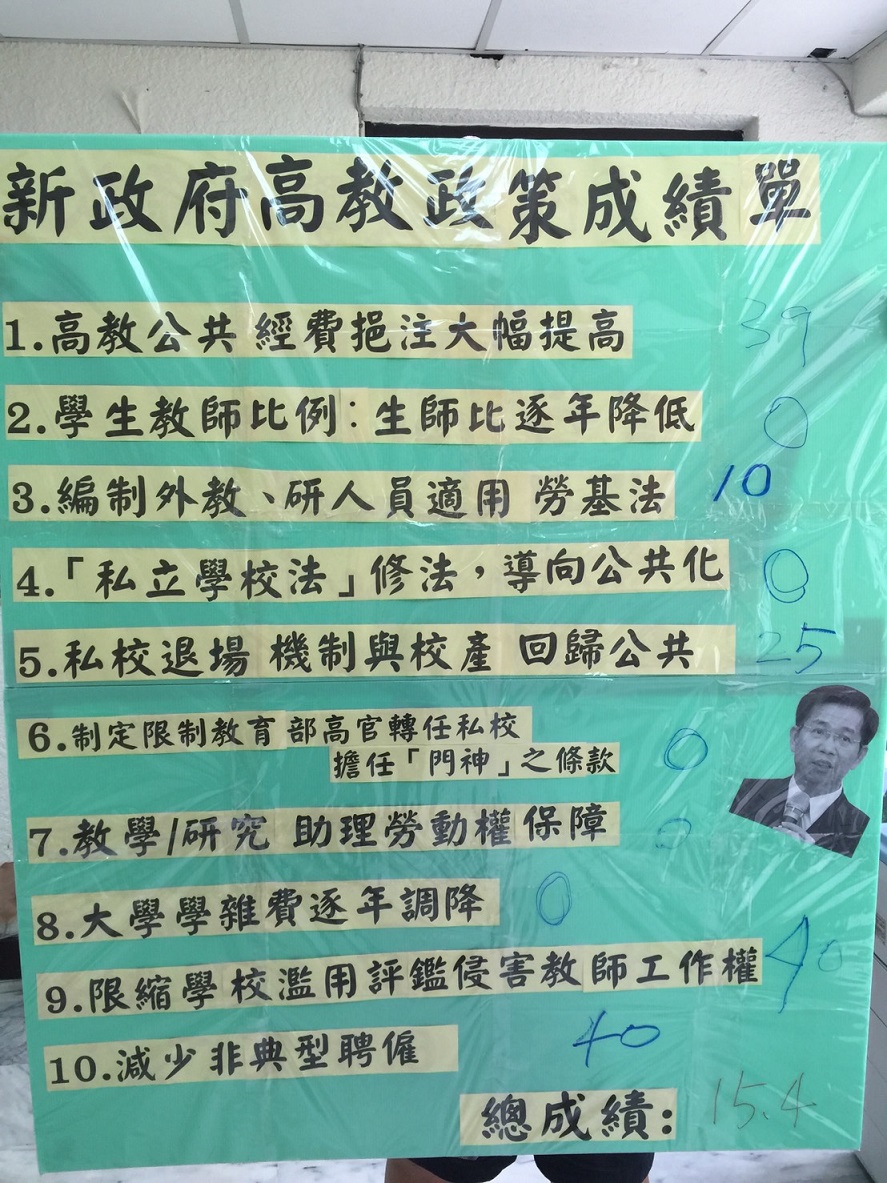 新政府高教政策成績單
1.高教公共經費挹注大幅提高 39
2.學生教師比例:生師比逐年降低 0
3.編制外教、研人員適用勞基法 10
4.「私立學校法」修法,導向公共化 0
5.私校退場機制與校產回歸公共 25
6.制定限制教育部高官轉任私校 0
擔任「門神」之條款
7.教學/研究助理勞動權保障
8.大學學雜費逐年調降 0
9.限縮學校濫用評鑑侵害教師工作權 40
10.減少非典型聘僱 40
總成績: 15.4